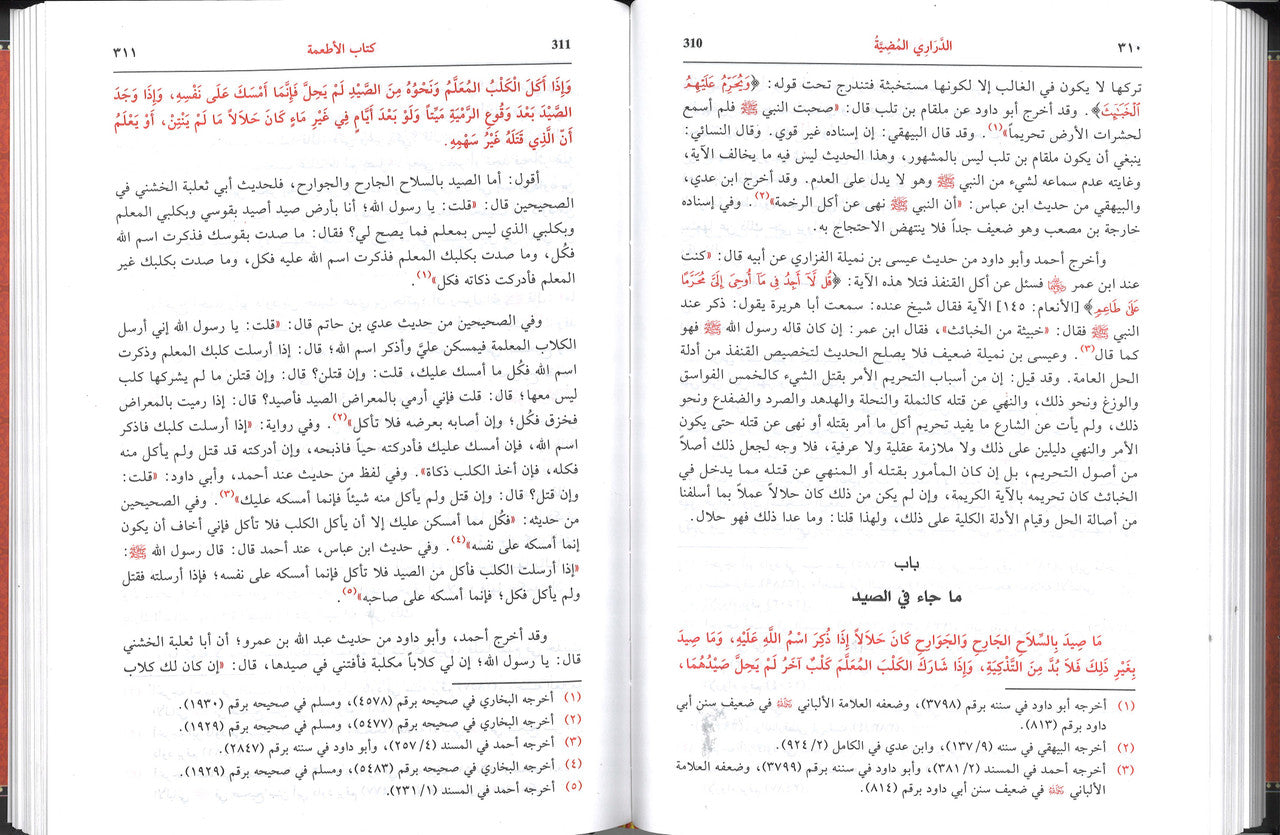 ٣١٠ الدَّرَارِي المُضِيَّةُ 310
تركها لا يكون في الغالب إلا لكونها مستخبثة فتندرج تحت قوله: ﴿وَيُحَرِّمُ عَلَيْهِمُ
الْخَبَائِثَ﴾. وقد أخرج أبو داود عن ملقام بن تلب قال: «صحبت النبي ﷺ فلم أسمع
لحشرات الأرض تحريماً»(١). وقد قال البيهقي: إن إسناده غير قوي. وقال النسائي:
ينبغي أن يكون ملقام بن تلب ليس بالمشهور، وهذا الحديث ليس فيه ما يخالف الآية،
وغايته عدم سماعه لشيء من النبي ﷺ وهو لا يدل على العدم. وقد أخرج ابن عدي،
والبيهقي من حديث ابن عباس: «أن النبي ﷺ نهى عن أكل الرخمة»(٢). وفي إسناده
خارجة بن مصعب وهو ضعيف جداً فلا ينتهض الاحتجاج به.
وأخرج أحمد وأبو داود من حديث عيسى بن نميلة الفزاري عن أبيه قال: «كنت
عند ابن عمر فسئل عن أكل القنفذ فتلا هذه الآية: ﴿قُل لَّا أَجِدُ فِي مَا أُوحِيَ إِلَيَّ مُحَرَّمًا
عَلَىٰ طَاعِمٍ﴾ [الأنعام: ١٤٥] الآية فقال شيخ عنده: سمعت أبا هريرة يقول: ذكر عند
النبي ﷺ فقال: «خبيثة من الخبائث»، فقال ابن عمر: إن كان قاله رسول الله ﷺ فهو
كما قال(٣). وعيسى بن نميلة ضعيف فلا يصلح الحديث لتخصيص القنفذ من أدلة
الحل العامة. وقد قيل: إن من أسباب التحريم الأمر بقتل الشيء كالخمس الفواسق
والوزغ ونحو ذلك، والنهي عن قتله كالنملة والنحلة والهدهد والصرد والضفدع ونحو
ذلك، ولم يأت عن الشارع ما يفيد تحريم أكل ما أمر بقتله أو نهى عن قتله حتى يكون
الأمر والنهي دليلين على ذلك ولا ملازمة عقلية ولا عرفية، فلا وجه لجعل ذلك أصلاً
من أصول التحريم، بل إن كان المأمور بقتله أو المنهي عن قتله مما يدخل في
الخبائث كان تحريمه بالآية الكريمة، وإن لم يكن من ذلك كان حلالاً عملاً بما أسلفنا
من أصالة الحل وقيام الأدلة الكلية على ذلك، ولهذا قلنا: وما عدا ذلك فهو حلال.
باب
ما جاء في الصيد
مَا صِيدَ بِالسِّلاَحِ الجَارِحِ وَالجَوَارِحِ كَانَ حَلاَلاً إِذَا ذُكِرَ اسْمُ اللَّهِ عَلَيْهِ، وَمَا صِيدَ
بِغَيْرِ ذَلِكَ فَلاَ بُدَّ مِنَ التَّذْكِيَةِ، وَإِذَا شَارَكَ الكَلْبَ المُعَلَّمَ كَلْبٌ آخَرُ لَمْ يَحِلَّ صَيْدُهُمَا،
(١) أخرجه أبو داود في سننه برقم (٣٧٩٨)، وضعفه العلامة الألباني في ضعيف سنن أبي
داود برقم (٨١٣).
(٢) أخرجه البيهقي في سننه (١٣٧/٩)، وابن عدي في الكامل (٩٢٤/٢).
(٣) أخرجه أحمد في المسند (٣٨١/٢)، وأبو داود في سننه برقم (٣٧٩٩)، وضعفه العلامة
الألباني في ضعيف سنن أبي داود برقم (٨١٤).
311 كتاب الأطعمة ٣١١
وَإِذَا أَكَلَ الْكَلْبُ المُعَلَّمُ وَنَحْوُهُ مِنَ الصَّيْدِ لَمْ يَحِلَّ فَإِنَّمَا أَمْسَكَ عَلَى نَفْسِهِ، وَإِذَا وَجَدَ
الصَّيْدَ بَعْدَ وَقُوعِ الرَّمْيَةِ مَيِّتاً وَلَوْ بَعْدَ أَيَّامٍ فِي غَيْرِ مَاءٍ كَانَ حَلاَلاً مَا لَمْ يَنْتِنْ، أَوْ يَعْلَمُ
أَنّ الَّذِي قَتَلَهُ غَيْرُ سَهْمِهِ.
أقول: أما الصيد بالسلاح الجارح والجوارح، فلحديث أبي ثعلبة الخشني في
الصحيحين قال: «قلت: يا رسول الله؛ أنا بأرض صيد أصيد بقوسي وبكلبي المعلم
وبكلبي الذي ليس بمعلم فما يصح لي؟ فقال: ما صدت بقوسك فذكرت اسم الله
فكُل، وما صدت بكلبك المعلم فذكرت اسم الله عليه فكل، وما صدت بكلبك غير
المعلم فأدركت ذكاته فكل»(١).
وفي الصحيحين من حديث عدي بن حاتم قال: «قلت: يا رسول الله إني أرسل
الكلاب المعلمة فيمسكن عليَّ وأذكر اسم الله؛ قال: إذا أرسلت كلبك المعلم وذكرت
اسم الله فكُل ما أمسك عليك، قلت: وإن قتلن؟ قال: وإن قتلن ما لم يشركها كلب
ليس معها؛ قال: قلت فإني أرمي بالمعراض الصيد فأصيد؟ قال: إذا رميت بالمعراض
فخزق فكُل؛ وإن أصابه بعرضه فلا تأكل»(٢). وفي رواية: «إذا أرسلت كلبك فاذكر
اسم الله، فإن أمسك عليك فأدركته حياً فاذبحه، وإن أدركته قد قتل ولم يأكل منه
فكله، فإن أخذ الكلب ذكاة». وفي لفظ من حديث عند أحمد، وأبي داود: «قلت:
وإن قتل؟ قال: وإن قتل ولم يأكل منه شيئاً فإنما أمسكه عليك»(٣). وفي الصحيحين
من حديثه: «فكُل مما أمسكن عليك إلا أن يأكل الكلب فلا تأكل فإني أخاف أن يكون
إنما أمسكه على نفسه»(٤). وفي حديث ابن عباس، عند أحمد قال: قال رسول الله ﷺ:
«إذا أرسلت الكلب فأكل من الصيد فلا تأكل فإنما أمسكه على نفسه؛ فإذا أرسلته فقتل
ولم يأكل فكل؛ فإنما أمسكه على صاحبه»(٥).
وقد أخرج أحمد، وأبو داود من حديث عبد الله بن عمرو؛ أن أبا ثعلبة الخشني
قال: يا رسول الله؛ إن لي كلاباً مكلبة فأفتني في صيدها، قال: «إن كان لك كلاب
(١) أخرجه البخاري في صحيحه برقم (٤٥٧٨)، ومسلم في صحيحه برقم (١٩٣٠).
(٢) أخرجه البخاري في صحيحه برقم (٥٤٧٧)، ومسلم في صحيحه برقم (١٩٢٩).
(٣) أخرجه أحمد في المسند (٢٥٧/٤)، وأبو داود في سننه برقم (٢٨٤٧).
(٤) أخرجه البخاري في صحيحه برقم (٥٤٨٣)، ومسلم في صحيحه برقم (١٩٢٩).
(٥) أخرجه أحمد في المسند (٢٣١/١).